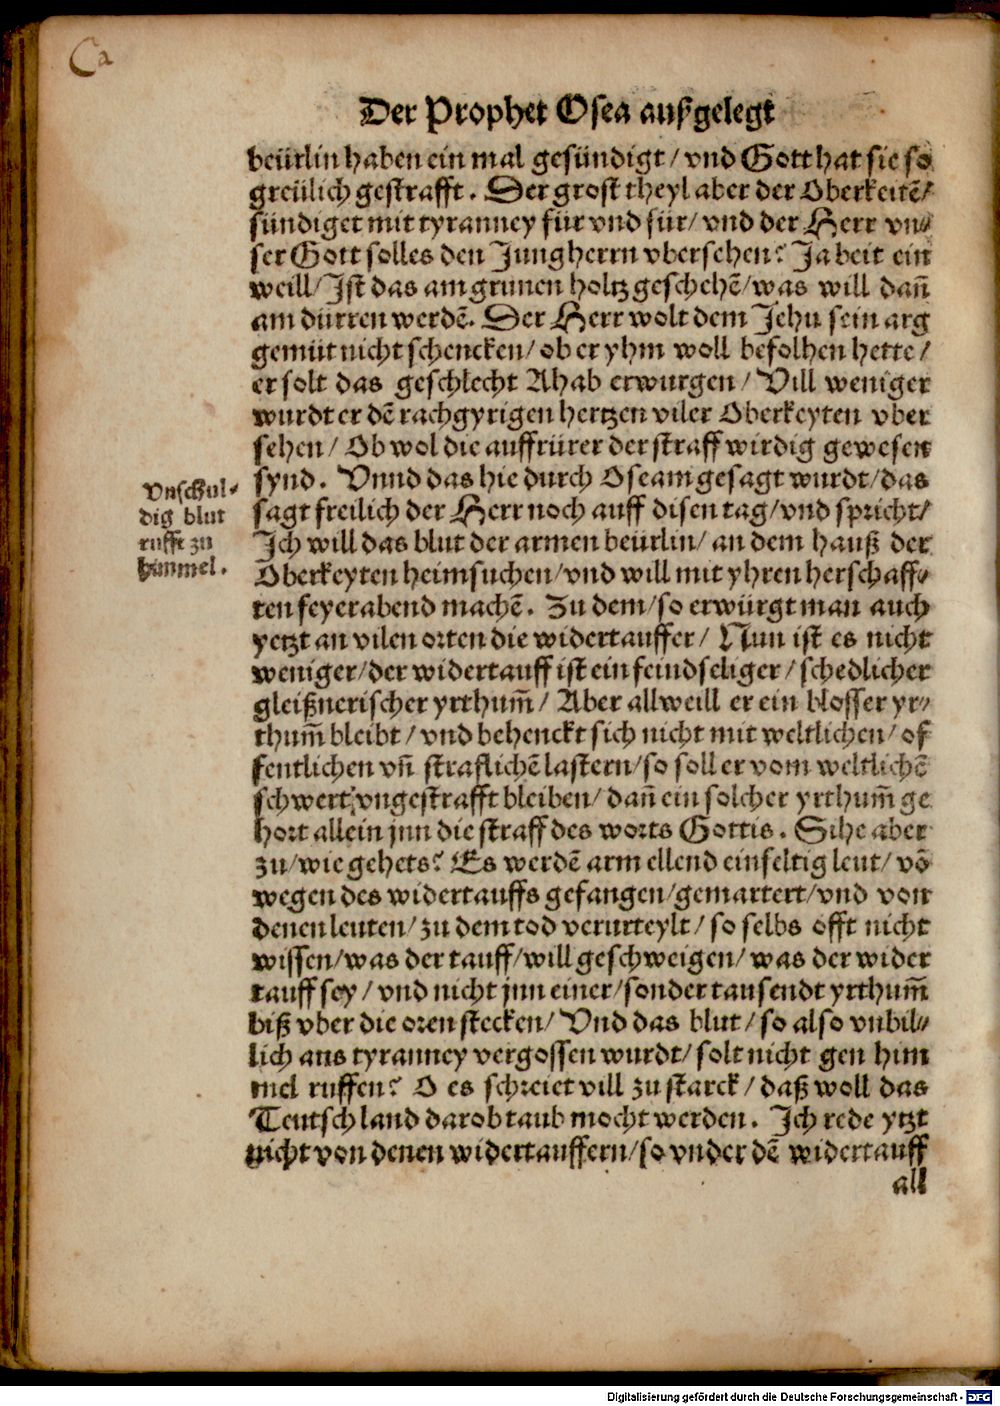 Ca
Der Prophet Osea außgelegt
beürlin haben ein mal gesündigt / vnd Gott hat sie so
greülich gestrafft. Der grost theyl aber der Oberkeitē/
sündiget mit tyranney für vnd für / vnd der Herr vn⸗
ser Gott solles den Jungherrn vbersehen? Ja beit ein
weill / Ist das am grunen holtz geschehē / was will dañ
am dürren werdē. Der Herr wolt dem Jehu sein arg
gemüt nicht schencken / ob er yhm woll befolhen hette /
er solt das geschlecht Ahab erwurgen / Vill weniger
wurdt er dē rachgyrigen hertzen viler Oberkeyten vber
sehen / Ob wol die auffrürer der straff wirdig gewesen
synd. Vnnd das hie durch Oseam gesagt wurdt / das
sagt freilich der Herr noch auff disen tag / vnd spricht /
Ich will das blut der armen beürlin / an dem hauß der
Oberkeyten heimsuchen / vnd will mit yhren herschaff⸗
ten feyerabend machē. Zu dem / so erwürgt man auch
yetzt an vilen orten die widertauffer / Nun ist es nicht
weniger / der widertauff ist ein feindseliger / schedlicher
gleißnerischer yrthum̃ / Aber allweill er ein blosser yr⸗
thum̃ bleibt / vnd behenckt sich nicht mit weltlichen / of
fentlichen vñ straflichē lastern / so soll er vom weltlichē
schwert vngestrafft bleiben / dañ ein solcher yrthum̃ ge
hort allein jnn die straff des worts Gottis. Sihe aber
zu / wie gehets? Es werdē arm ellend einfeltig leut / vō
wegen des widertauffs gefangen / gemartert / vnd von
denen leuten / zu dem tod verurteylt / so selbs offt nicht
wissen / was der tauff / will geschweigen / was der wider
tauff sey / vnd nicht jnn einer / sonder tausendt yrthum̃
biß vber die oren stecken / Vnd das blut / so also vnbil⸗
lich aus tyranney vergossen wurdt / solt nicht gen him
mel ruffen? O es schreiet vill zu starck / daß woll das
Teutschland darob taub mocht werden. Ich rede ytzt
nicht von denen widertauffern / so vnder dē widertauff
all
Vnschul⸗
dig blut
rufft zu
himmel.
Digitalisierung gefördert durch die Deutsche Forschungsgemeinschaft - DFG